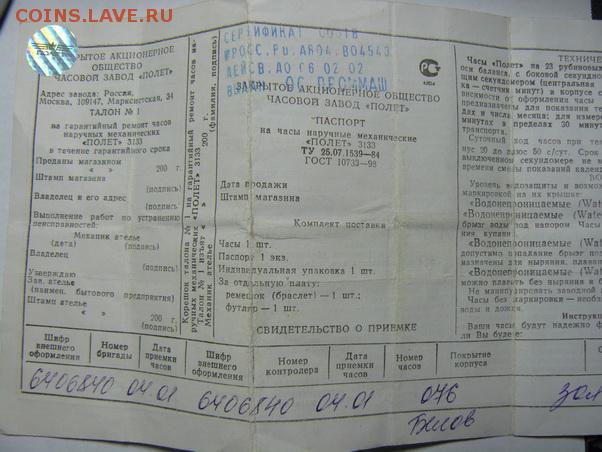 COINS.LAVE.RU
СЕРТИФИКАТ СООТВ
№РОСС.RU.АВ04.В04543
ДЕЙСВ.ДО 06 02 02
ЗАКРЫТОЕ АКЦИОНЕРНОЕ
ОБЩЕСТВО
ЧАСОВОЙ ЗАВОД «ПОЛЕТ»
Адрес завода: Россия,
Москва, 109147, Марксистская, 34
ТАЛОН № 1
на гарантийный ремонт часов
наручных механических
«ПОЛЕТ» 3133
в течение гарантийного срока
Проданы магазином
« » 200 г.
Штамп магазина
(подпись)
Владелец и его адрес
(подпись)
Выполнение работ по устранению
неисправностей:
Механик ателье
(дата) (подпись)
Владелец
(подпись)
Утверждаю
Зав. ателье
(наимен. бытового предприятия)
Штамп ателье
« » 200 г.
(подпись)
Корешок талона № 1 на гарантийный ремонт часов на-
ручных механических «ПОЛЕТ» 3133
Талон № 1 изъят « » 200 г.
Механик ателье
(фамилия, подпись)
ЗАКРЫТОЕ АКЦИОНЕРНОЕ ОБЩЕСТВО
ЧАСОВОЙ ЗАВОД «ПОЛЕТ»
ПАСПОРТ
на часы наручные механические
«ПОЛЕТ» 3133
ТУ 25.07.1539—84
ГОСТ 10733—98
Дата продажи
Штамп магазина
Комплект поставки
Часы 1 шт.
Паспорт 1 экз.
Индивидуальная упаковка 1 шт.
За отдельную плату:
ремешок (браслет) — 1 шт.;
футляр — 1 шт.
СВИДЕТЕЛЬСТВО О ПРИЕМКЕ
ТЕХНИЧЕ
Часы «Полет» на 23 рубиновы
оси баланса, с боковой секундно
щим секундомером (центральная
ка — счетчик минут) в корпусе с
висимости от оформления часы
предназначены для показания те
дах и числа месяца; для измере
минутах в пределах 30 минут
транспорта.
Суточный ход часов при тем
нус 20 до плюс 50 с/сут. Срок
выключенном секундомере не м
времени смены показаний календ
ВО
Уровень водозащиты и возмож
маркировкой на их крышке:
«Водонепроницаемые (Wate
«Водонепроницаемые (Water
брызг воды под напором Часы
ния купания.
«Водонепроницаемые (Water
допустимо попадание брызг под
назначены для ныряния, плавани
«Водонепроницаемые (Wat
можно плавать без ныряния и бе
Не манипулировать заводной г
Часы без маркировки — необх
воды и дождя.
Инструкц
Ваши часы будут надежно ф
ли Вы будете:
Шифр внешнего оформления
Номер бригады
Дата приемки часов
Шифр внешнего оформления
Номер контролера
Дата приемки часов
Номер часов
Покрытие корпуса
6406840 04.01 6406840 04.01 076
Белов